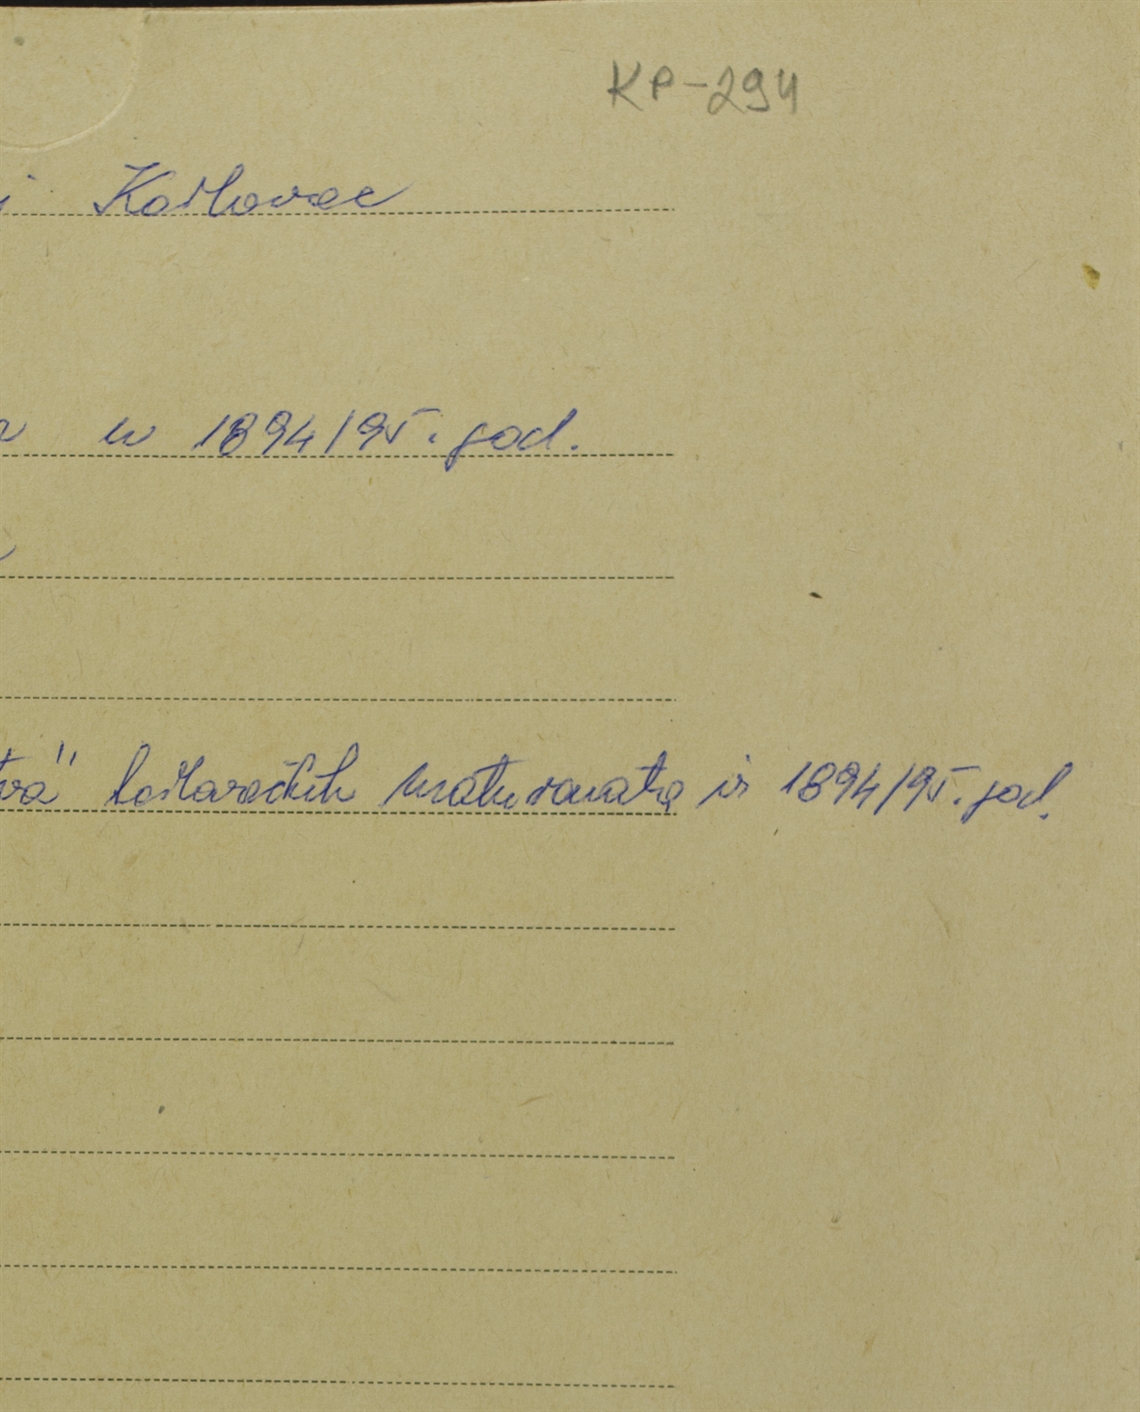 KP-294
i Karlovac
u 1894/95. god.
tva" karlovačkih maturanata iz 1894/95. god.